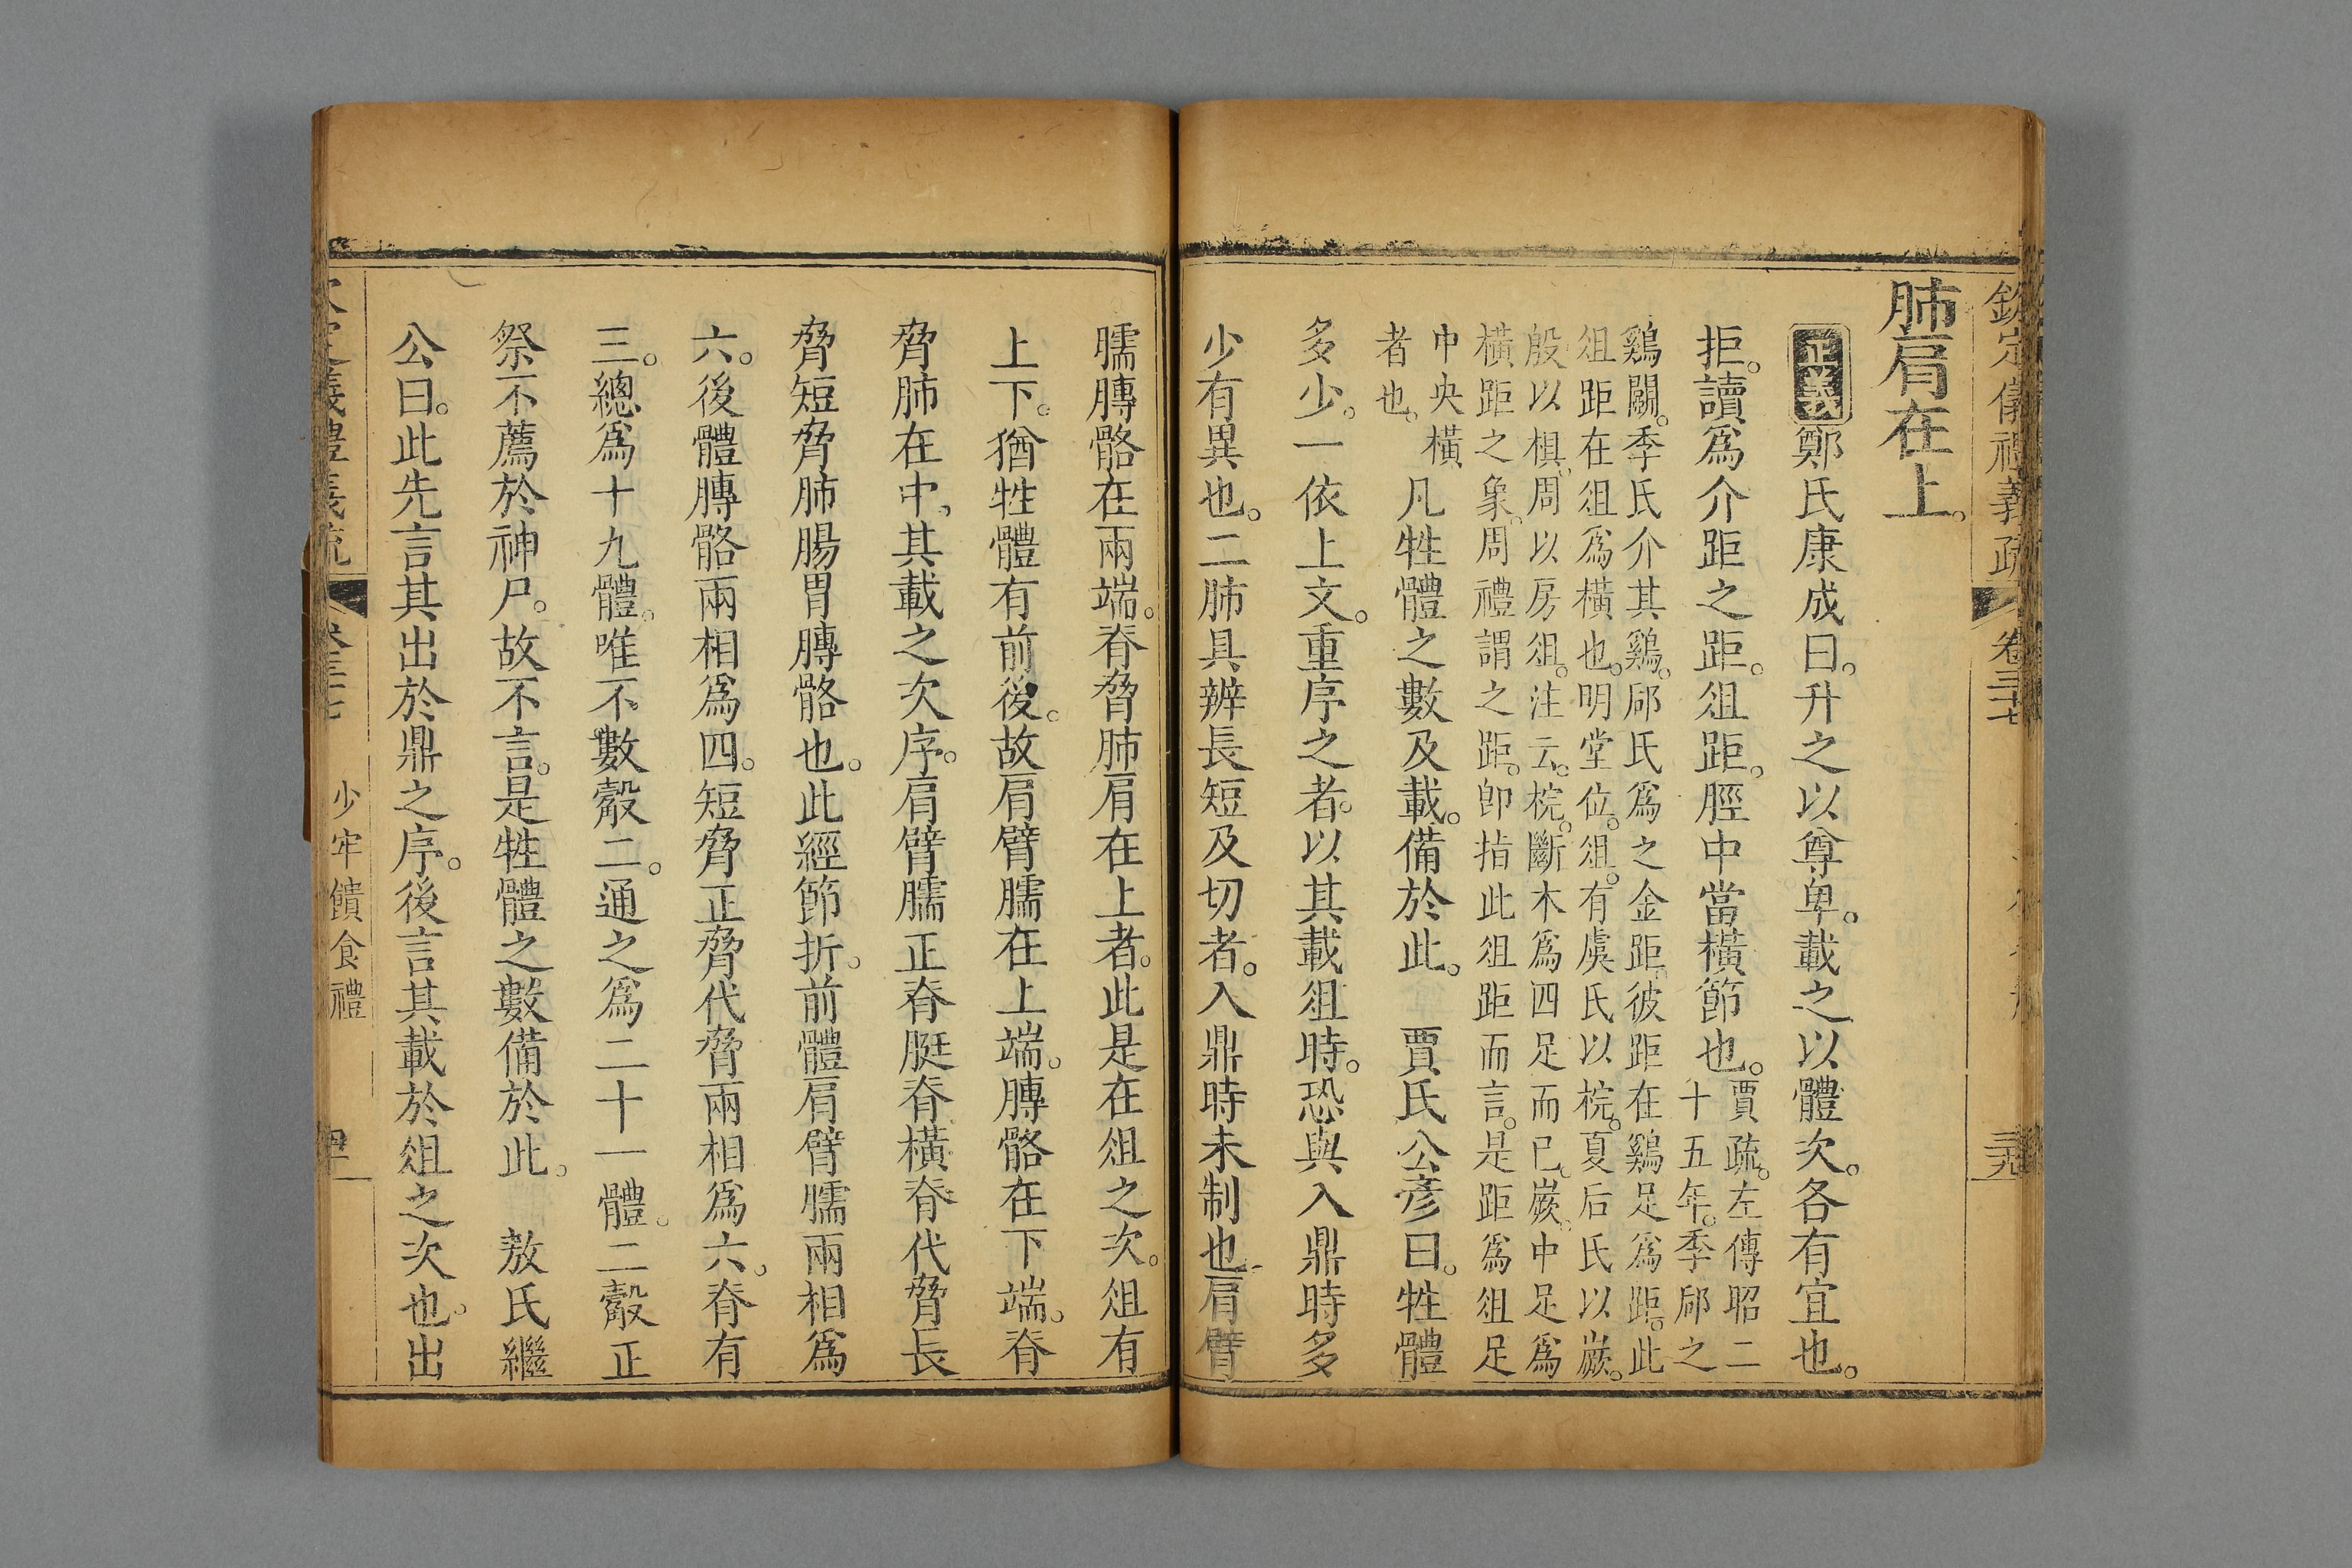 欽定儀禮義疏 卷三十七 三九
肺肩在上。
正義 鄭氏康成曰。升之以尊卑。載之以體次。各有宜也。
拒。讀爲介距之距。俎距。脛中當橫節也。賈疏。左傳昭二
十五年。季郈之
鷄鬭。季氏介其鷄。郈氏爲之金距。彼距在鷄足爲距。此
俎距在俎爲橫也。明堂位。俎。有虞氏以梡。夏后氏以嶡。
殷以椇。周以房俎。注云。梡。斷木爲四足而已。嶡。中足爲
橫距之象。周禮謂之距。卽指此俎距而言。是距爲俎足
中央橫
者也。
凡牲體之數及載。備於此。 賈氏公彦曰。牲體
多少。一依上文。重序之者。以其載俎時。恐與入鼎時多
少有異也。二肺具辨長短及切者。入鼎時未制也。肩臂
臑膞骼在兩端。脊脅肺肩在上者。此是在俎之次。俎有
上下。猶牲體有前後。故肩臂臑在上端。膞骼在下端。脊
脅肺在中。其載之次序。肩臂臑正脊脡脊橫脊代脅長
脅短脅肺腸胃膞骼也。此經節折。前體肩臂臑兩相爲
六。後體膞骼兩相爲四。短脅正脅代脅兩相爲六。脊有
三。總爲十九體。唯不數觳二。通之爲二十一體。二觳正
祭不薦於神尸。故不言。是牲體之數備於此。 敖氏繼
公曰。此先言其出於鼎之序。後言其載於俎之次也。出
義禮義疏 卷三十七 少牢饋食禮 四十